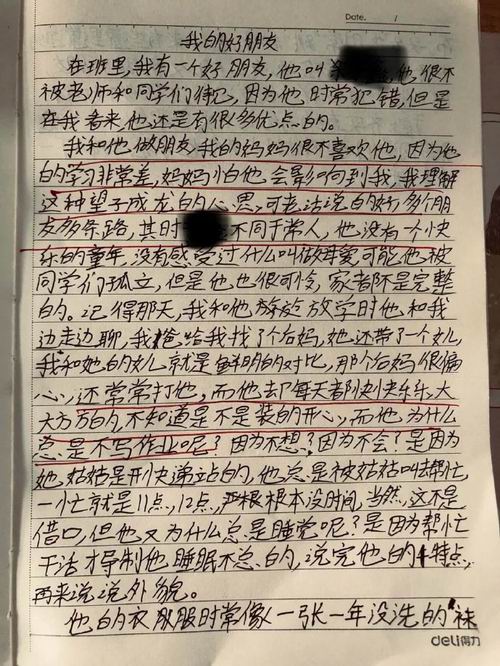 Date. /
我的好朋友
在班里,我有一个好朋友,他叫 他很不
被老师和同学们待见,因为他时常犯错,但是
在我看来,他还是有很多优点的。
我和他做朋友,我的妈妈很不喜欢他,因为他
的学习非常差,妈妈怕他会影响到我,我理解
这种望子成龙的心思,可老话说的好,多个朋
友多条路,其时 不同于常人,他没有一个快
乐的童年,没有感受过什么叫做母爱,可能他被
同学们孤立,但是他也很可怜,家者都不是完整
的。记得那天,我和他 放学时他和我
边走边聊,我爸给我找了个后妈,她还带了一个女儿,
我和她的女儿就是鲜明的对比,那个后妈很偏
心,还常常打他,而他却每天都快快乐乐,大
大方方的,不知道是不是装的开心,而他为什么
总是不写作业呢?因为不想?因为不会?是因为
她姑姑是开快递站的,他总是被姑姑叫去帮忙,
一忙就是11点,12点,严根根本没时间,当然,这不是
借口,但他又为什么总是睡觉呢?是因为帮忙
干活才导制他睡眠不总的,说完他的特点,
再来说说外貌。
他的衣服服时常像一张一年没洗的袜
deli得力